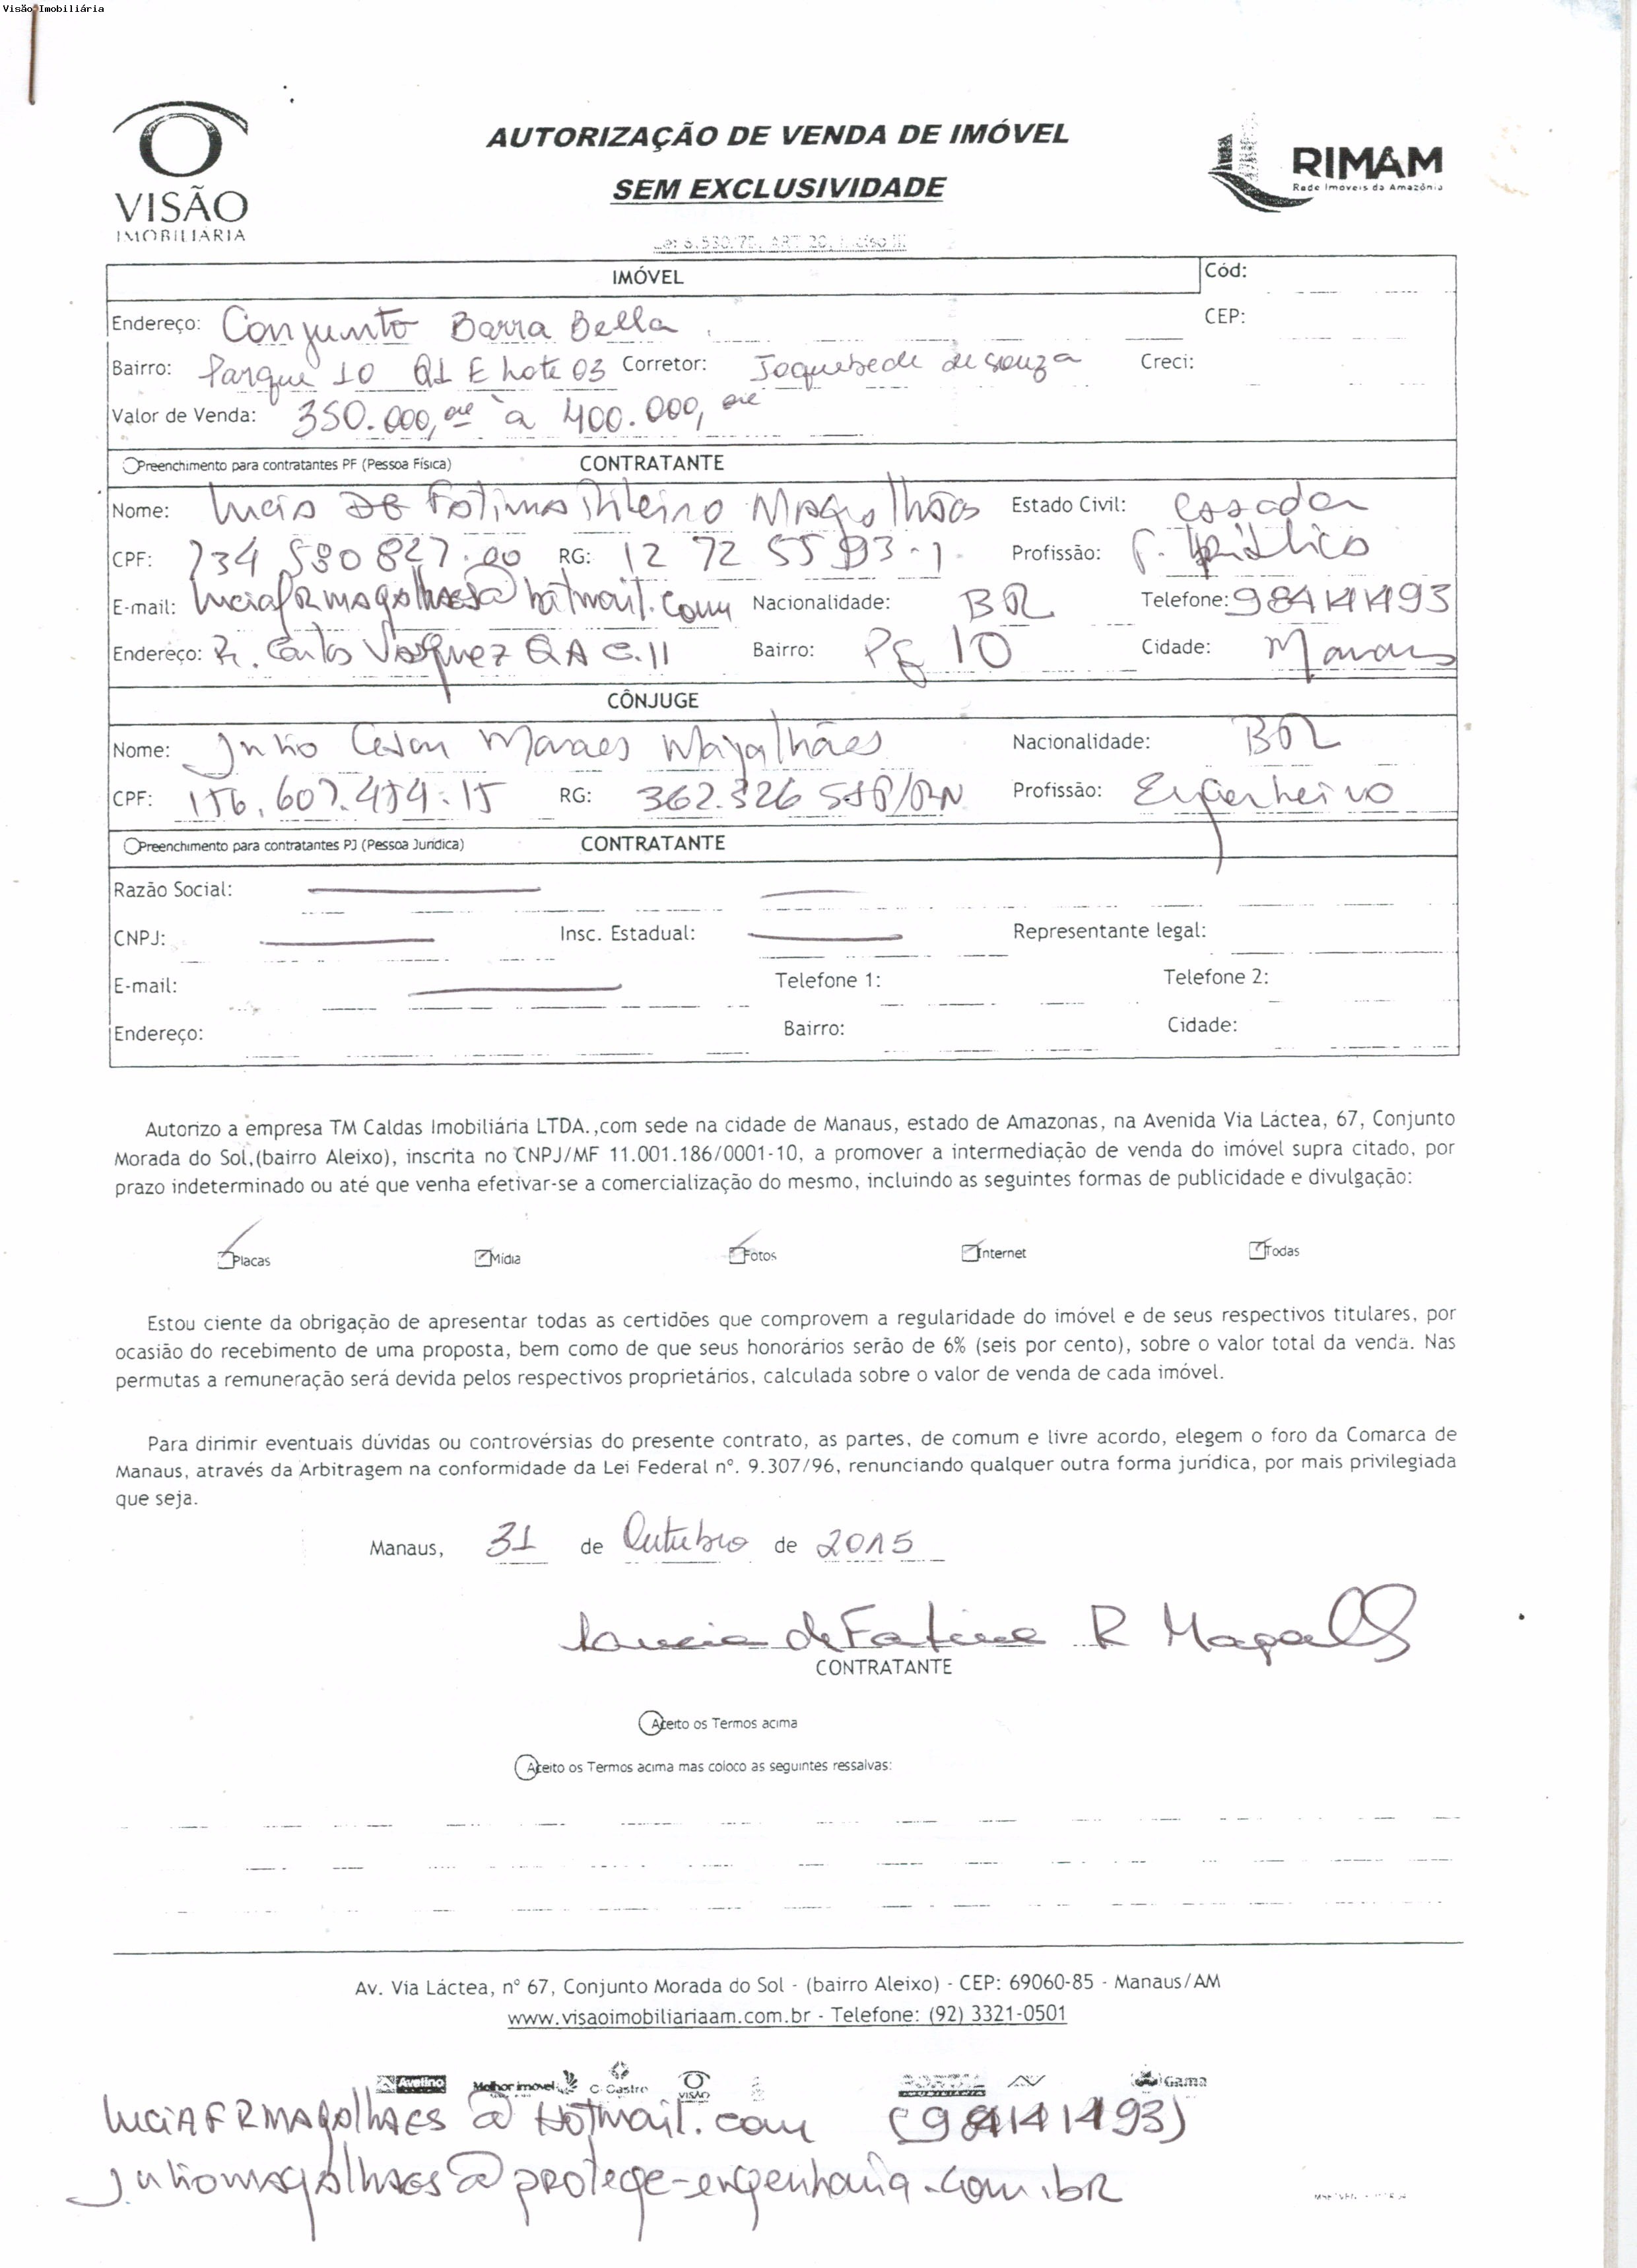 Visão Imobiliária
VISÃO
IMOBILIÁRIA
AUTORIZAÇÃO DE VENDA DE IMÓVEL
SEM EXCLUSIVIDADE
RIMAM
Rede Imoveis da Amazônia
IMÓVEL Cód:
Endereço: Conjunto Barra Bella CEP:
Bairro: Parque 10 Q1 E Lote 03 Corretor: Joquebede de souza Creci:
Valor de Venda: 350.000, à 400.000,
Preenchimento para contratantes PF (Pessoa Física) CONTRATANTE
Nome: Lucia DE Fatima Ribeiro Magalhães Estado Civil: Casada
CPF: 234 580 827.00 RG: 12 72 55 93-1 Profissão:
E-mail: luciafRmagalhaes@hotmail.com Nacionalidade: BR Telefone: 984141493
Endereço: R. Carlos Vasquez QA C.11 Bairro: Pq 10 Cidade: Manaus
CÔNJUGE
Nome: Julio Cesar Moraes Magalhães Nacionalidade: BR
CPF: 156.607.454.15 RG: 362.326 SSP/RN Profissão: Engenheiro
Preenchimento para contratantes PJ (Pessoa Jurídica) CONTRATANTE
Razão Social:
CNPJ: Insc. Estadual: Representante legal:
E-mail: Telefone 1: Telefone 2:
Endereço: Bairro: Cidade:
Autorizo a empresa TM Caldas Imobiliária LTDA.,com sede na cidade de Manaus, estado de Amazonas, na Avenida Via Láctea, 67, Conjunto
Morada do Sol,(bairro Aleixo), inscrita no CNPJ/MF 11.001.186/0001-10, a promover a intermediação de venda do imóvel supra citado, por
prazo indeterminado ou até que venha efetivar-se a comercialização do mesmo, incluindo as seguintes formas de publicidade e divulgação:
Placas Mídia Fotos Internet Todas
Estou ciente da obrigação de apresentar todas as certidões que comprovem a regularidade do imóvel e de seus respectivos titulares, por
ocasião do recebimento de uma proposta, bem como de que seus honorários serão de 6% (seis por cento), sobre o valor total da venda. Nas
permutas a remuneração será devida pelos respectivos proprietários, calculada sobre o valor de venda de cada imóvel.
Para dirimir eventuais dúvidas ou controvérsias do presente contrato, as partes, de comum e livre acordo, elegem o foro da Comarca de
Manaus, através da Arbitragem na conformidade da Lei Federal nº. 9.307/96, renunciando qualquer outra forma jurídica, por mais privilegiada
que seja.
Manaus, 31 de Outubro de 2015
Lucia de Fatima R Magalhães
CONTRATANTE
Aceito os Termos acima
Aceito os Termos acima mas coloco as seguintes ressalvas:
Av. Via Láctea, nº 67, Conjunto Morada do Sol - (bairro Aleixo) - CEP: 69060-85 - Manaus/AM
www.visaoimobiliariaam.com.br - Telefone: (92) 3321-0501
Avelino Melhor imovel C. Castro VISÃO PORTAL Gama
luciAFRMAgalhAES @ Hotmail.com (984141493)
juliomagalhaes@protege-engenharia.com.br